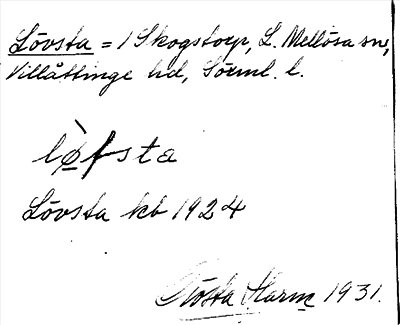 Lövsta = 1 Skogstorp, L. Mellösa sn,
Villåttinge hd, Sörml. l.
lø̀fsta
Lövsta kb 1924
Gösta Harm 1931.